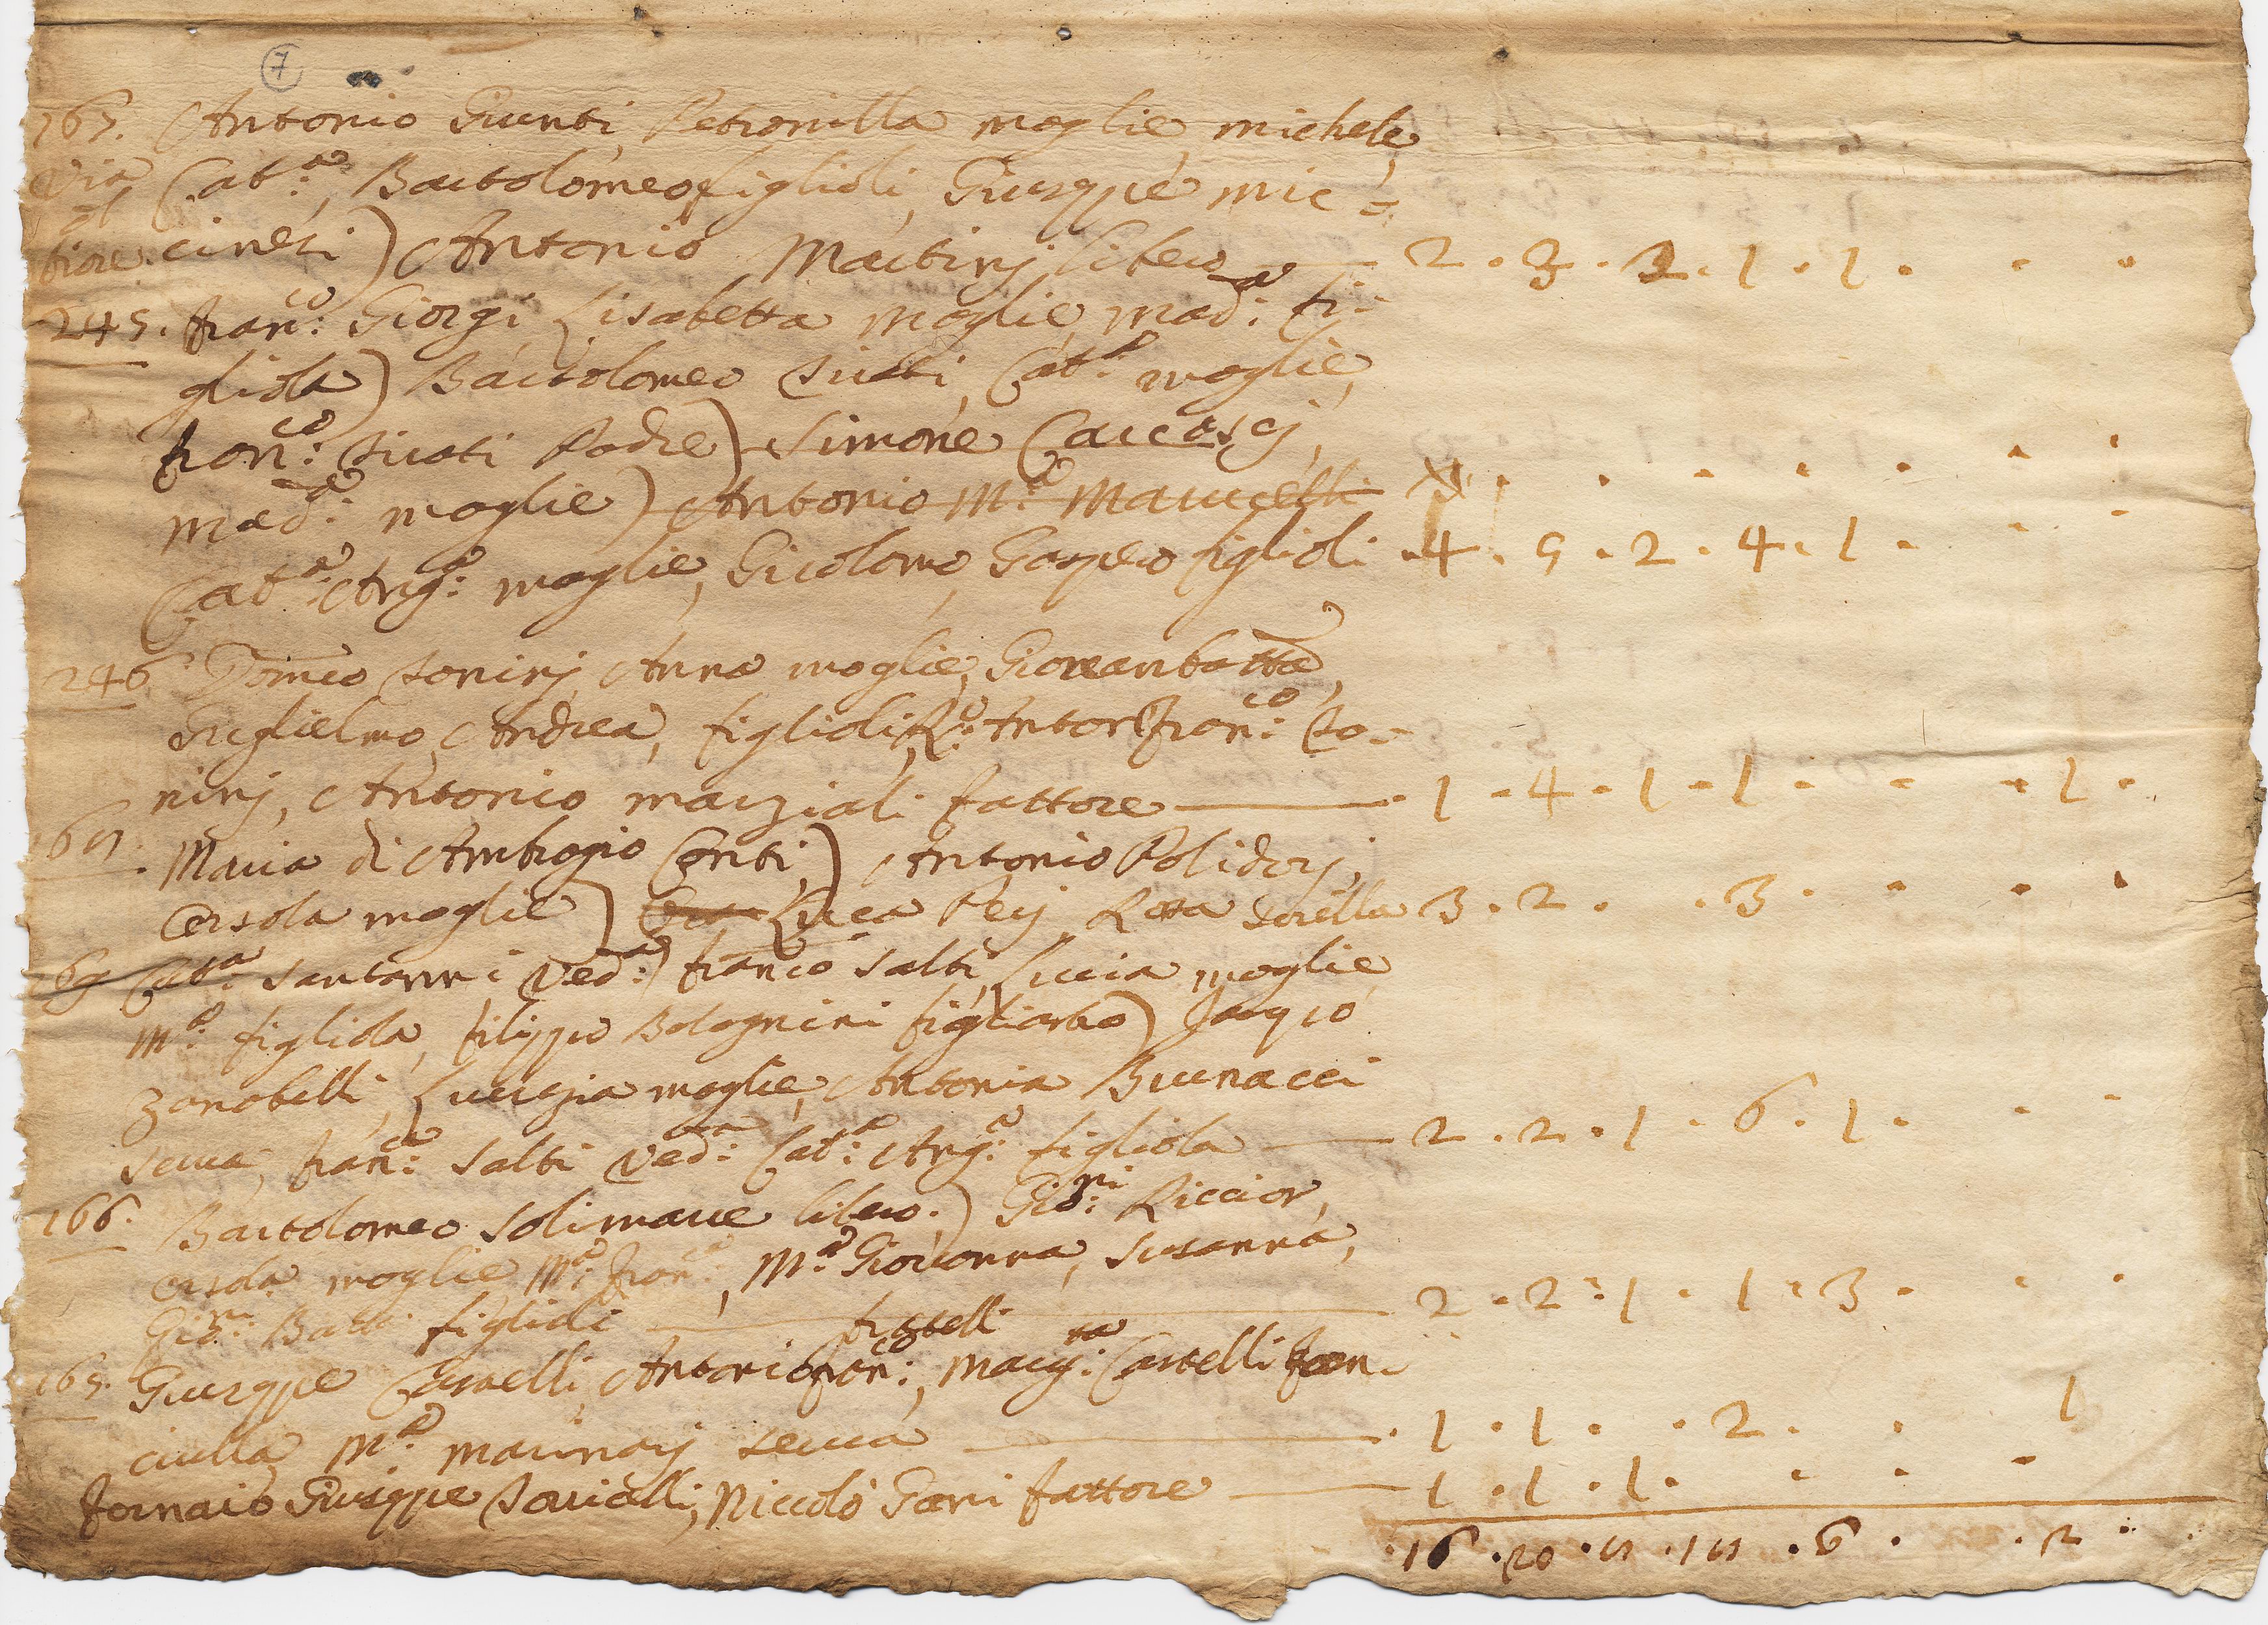 7
167. Antonio Giunti, Petronilla moglie, michele,
via Cat.a, Bartolomeo figlioli, Giuseppe mic=
cinesi) Antonio Martinj libero 2 . 3 . 2 . 1 . 1 . . .
fiore.
245. Fran.co Giorgi, Lisabetta moglie, Mad.a fi-
gliola) Bartolomeo Cat.a moglie,
Fran.co Padre) Simone
Mad.a moglie) Antonio M.a
Cat.a Ang.a moglie, Gaspero figlioli . 4 . 5 . 2 . 4 . 1 . . .
246. Domco Toninj, Anna moglie, Giovanbatta,
Guglielmo, Andrea, figlioli, Anton Fran.co To-
ninj, Antonio marziali fattore . 1 . 4 . 1 . 1 . . . 1 .
Maria di Ambrogio Conti) Antonio Polidorj,
Orsola moglie) Luca Perj, Rosa sorella 3 . 2 . . 3 . . . .
Cat.a Santonni Ved.a) franco Salti, Lucia moglie,
M.a figliola, filippo Bolognini figliastro) Jacopo
Zanobelli, Lucrezia moglie, Antonia Buonacci
serva, fran.ca Salti Ved.a Cat.a Ang.a figliola 2 . 2 . 1 . 6 . 1 . . .
166. Bartolomeo Solimane libero.) Gio:ni Riccior,
Orsola moglie, M.a Fran.ca, M.a Giovanna, Susanna,
Gio:ni Batt figlioli 2 . 2 . 1 . 1 . 3 . . .
fratelli
165. Giuseppe Castelli, Antonio fran.co, Marg.ta Castelli fan-
ciulla, M.a serva . 1 . 1 . . 2 . . 1
Fornaio Giuseppe Niccolò Gori fattore 1 . 1 . 1 . . . .
. 16 . 20 . . . 6 . . 2 .